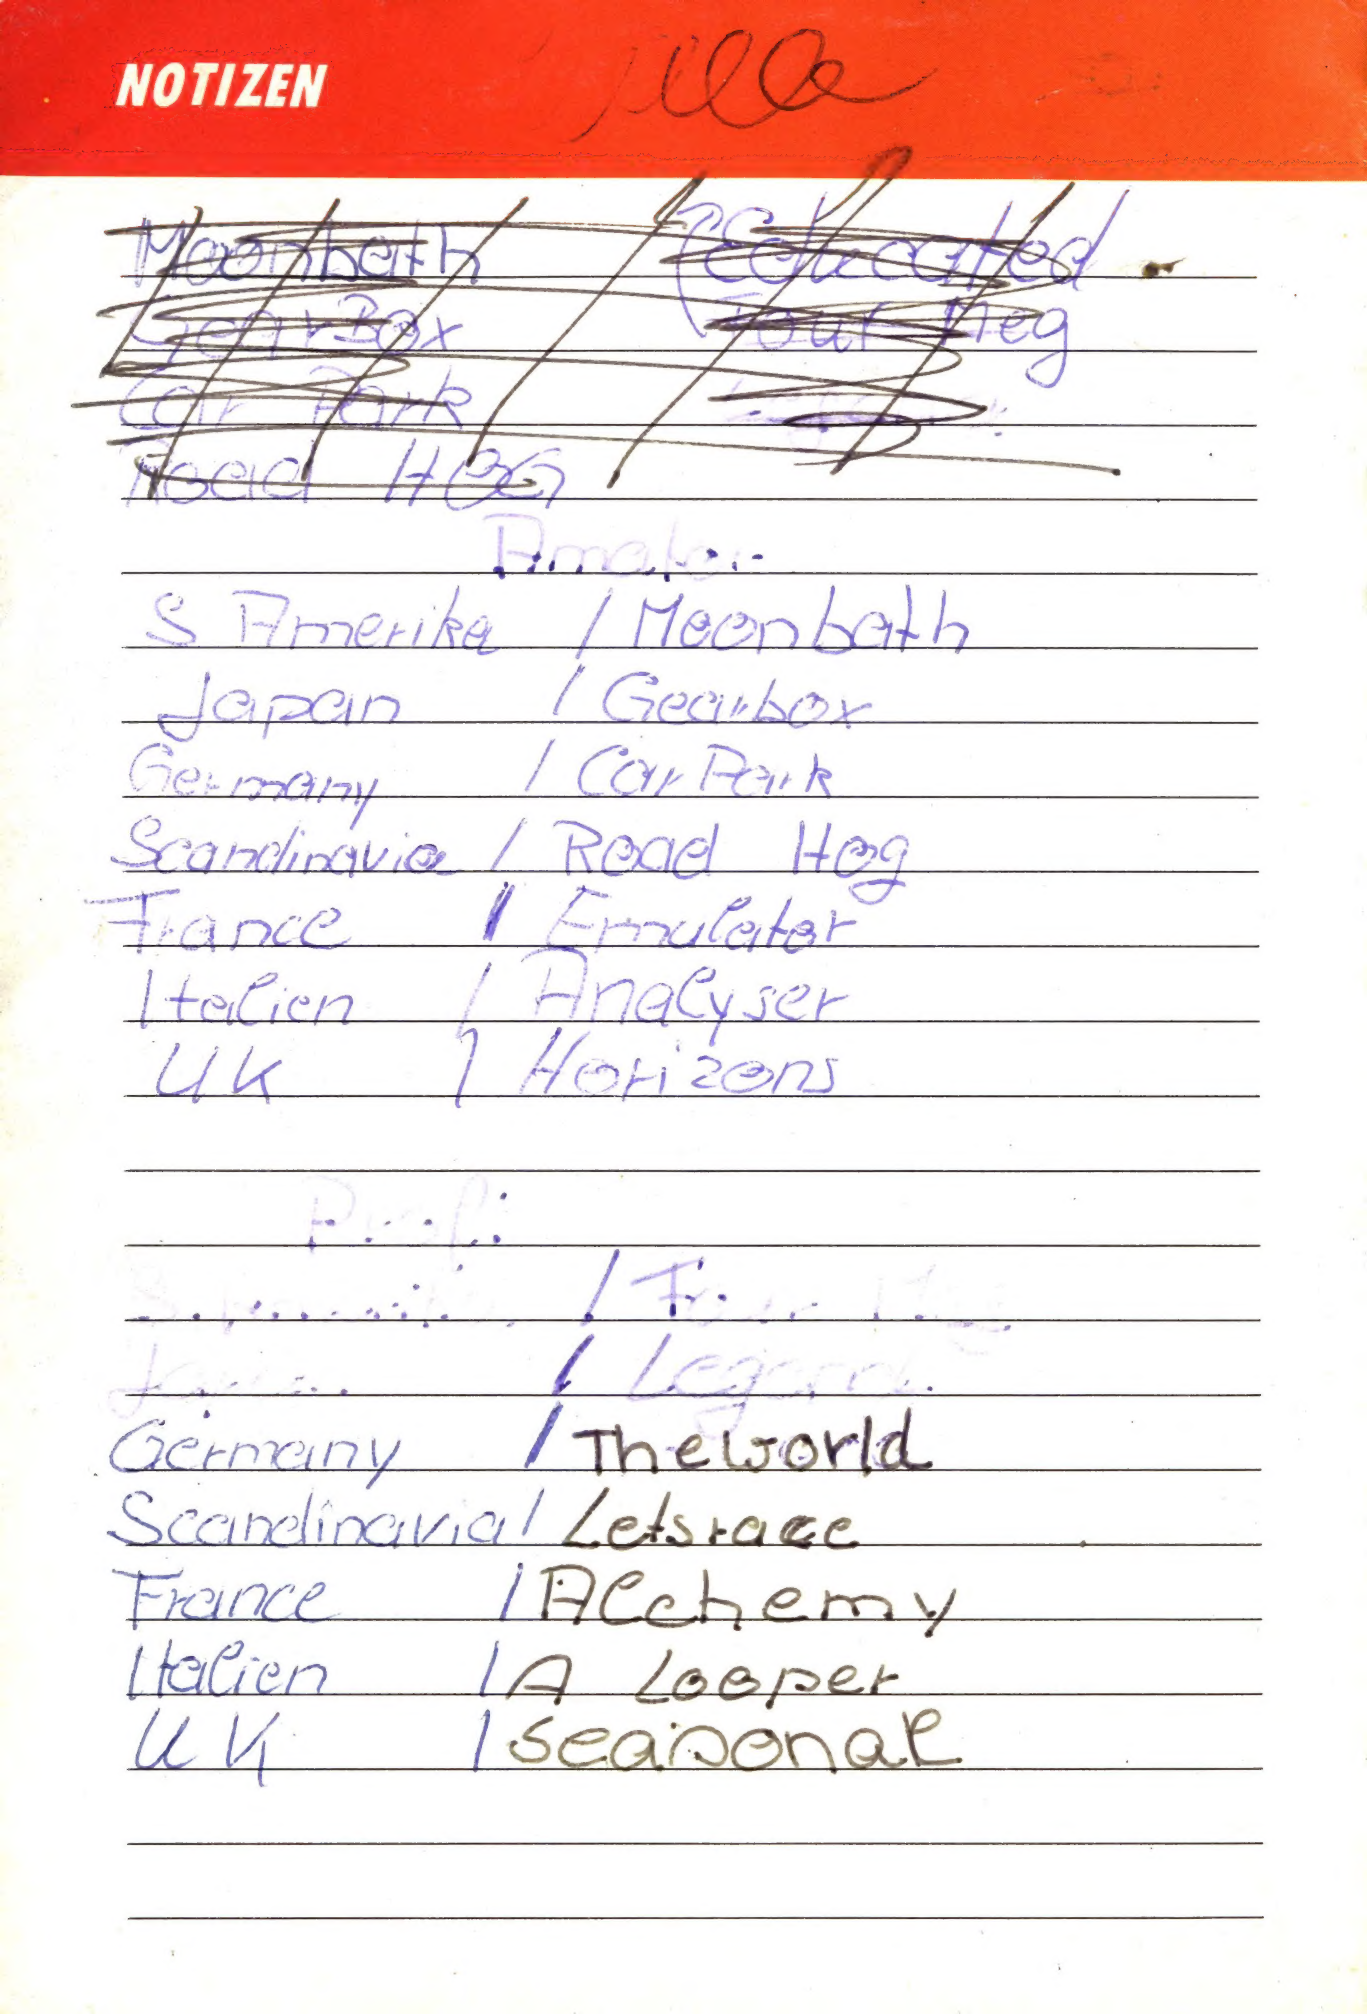 NOTIZEN
Moonbath (Educated
GearBox Four Meg
Car Park
Road HOG
S Amerika / Moonbath
Japan / Gearbox
Germany / Car Park
Scandinavia / Road Hog
France / Emulator
Italien / Analyser
UK / Horizons
Profi
/ Four Meg
Japan / Legend
Germany / The world
Scandinavia / Letsrace
France / Alchemy
Italien / A Looper
UK / Seasonal